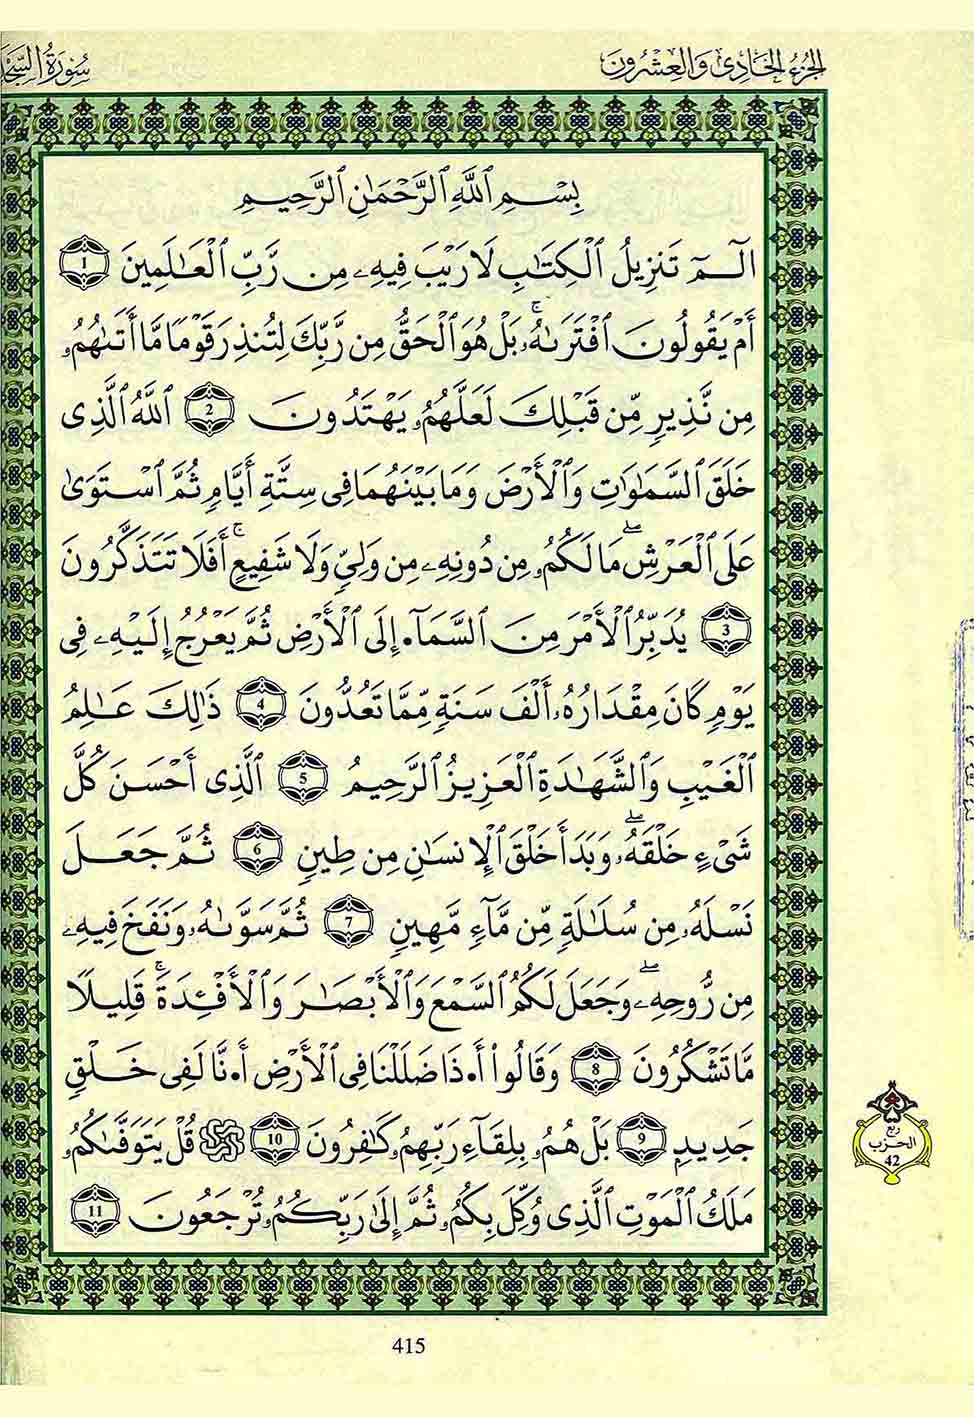 الجزء الحادي والعشرون
سورة السجد
بِسْمِ اللَّهِ الرَّحْمَٰنِ الرَّحِيمِ
الٓمٓ تَنزِيلُ الْكِتَٰبِ لَا رَيْبَ فِيهِۦ مِن رَّبِّ الْعَٰلَمِينَ 1
أَمْ يَقُولُونَ افْتَرَىٰهُۥ بَلْ هُوَ الْحَقُّ مِن رَّبِّكَ لِتُنذِرَ قَوْمًا مَّا أَتَىٰهُمُۥ
مِن نَّذِيرٍ مِّن قَبْلِكَ لَعَلَّهُمُۥ يَهْتَدُونَ 2 اللَّهُ الَّذِى
خَلَقَ السَّمَٰوَٰتِ وَالْأَرْضَ وَمَا بَيْنَهُمَا فِى سِتَّةِ أَيَّامٍ ثُمَّ اسْتَوَىٰ
عَلَى الْعَرْشِ مَا لَكُمُۥ مِن دُونِهِۦ مِن وَلِىٍّ وَلَا شَفِيعٍ أَفَلَا تَتَذَكَّرُونَ
3 يُدَبِّرُ الْأَمْرَ مِنَ السَّمَآءِ إِلَى الْأَرْضِ ثُمَّ يَعْرُجُ إِلَيْهِۦ فِى
يَوْمٍ كَانَ مِقْدَارُهُۥ أَلْفَ سَنَةٍ مِّمَّا تَعُدُّونَ 4 ذَٰلِكَ عَٰلِمُ
الْغَيْبِ وَالشَّهَٰدَةِ الْعَزِيزُ الرَّحِيمُ 5 الَّذِى أَحْسَنَ كُلَّ
شَىْءٍ خَلْقَهُۥ وَبَدَأَ خَلْقَ الْإِنسَٰنِ مِن طِينٍ 6 ثُمَّ جَعَلَ
نَسْلَهُۥ مِن سُلَٰلَةٍ مِّن مَّآءٍ مَّهِينٍ 7 ثُمَّ سَوَّىٰهُۥ وَنَفَخَ فِيهِۦ
مِن رُّوحِهِۦ وَجَعَلَ لَكُمُ السَّمْعَ وَالْأَبْصَٰرَ وَالْأَفْـِٔدَةَ قَلِيلًا
مَّا تَشْكُرُونَ 8 وَقَالُوا أَ.ذَا ضَلَلْنَا فِى الْأَرْضِ أَ.نَّا لَفِى خَلْقٍ
جَدِيدٍ 9 بَلْ هُمُۥ بِلِقَآءِ رَبِّهِمُۥ كَٰفِرُونَ 10 قُلْ يَتَوَفَّىٰكُمُۥ
مَلَكُ الْمَوْتِ الَّذِى وُكِّلَ بِكُمُۥ ثُمَّ إِلَىٰ رَبِّكُمُۥ تُرْجَعُونَ 11
ربع
الحزب
42
415